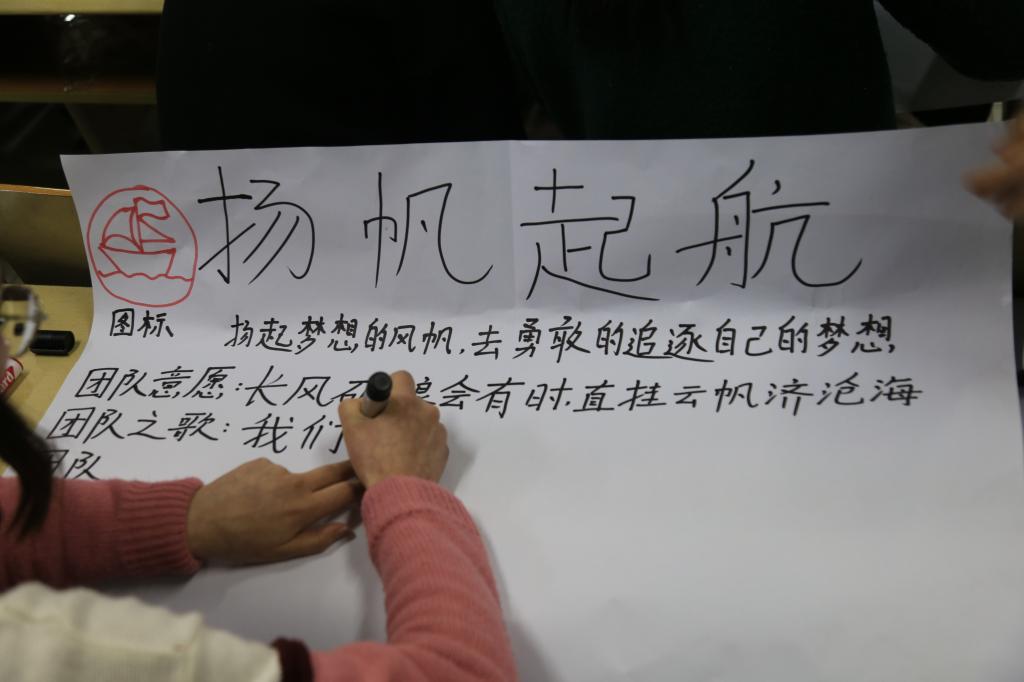 扬帆起航
图标、 扬起梦想的风帆,去勇敢的追逐自己的梦想,
团队意愿:长风破浪会有时,直挂云帆济沧海
团队之歌:我们
团队